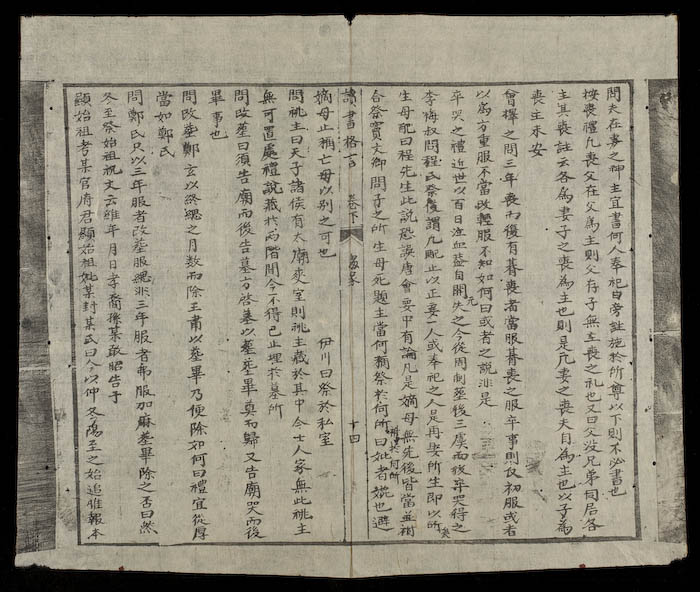 問夫在妻之神主宜書何人奉祀曰旁註施於所尊以下則不必書也
按喪禮凡喪父在父為主則父存子無主喪之礼也又曰父沒兄弟同居各
主其喪註云各為妻子之喪為主也則是凡妻之喪夫自為主也以子為
喪主未安
曾擇之問三年喪而復有朞喪者當服朞喪之服卒事則反初服或者
以為方重服不當改輕服不知如何曰或者之說非是
卒哭之禮近世以百日為期蓋自開元失之今從周制葬後三虞而後卒哭得之矣
李晦叔問程氏祭儀謂凡配止以正妻一人或奉祀之人是再娶所生即以所
生母配曰程先生此說恐誤唐會要中有論凡是嫡母無先後皆當並祔
合祭竇文卿問子之所生母死題主當何稱祭於何所祔葬於何所曰妣者媲也避
嫡母止稱亡母以別之可也 伊川曰祭於私室
讀書格言 卷下 喪祭 十四
問祧主曰天子諸侯有太廟夾室則祧主藏於其中今士人家無此祧主
無可置處禮說藏於兩階間今不得已止埋於墓所
問改葬曰須告廟而後告墓方啓墓以葬葬畢奠而歸又告廟哭而後
畢事也
問改葬鄭玄以終緦之月數而除王肅以葬畢乃便除如何曰禮宜從厚
當如鄭氏
問鄭氏只以三年服者改葬服緦非三年服者弔服加麻葬畢除之否曰然
冬至祭始祖祝文云維年月日孝裔孫某敢昭告于
顯始祖考某官府君顯始祖妣某封某氏曰今以仲冬陽至之始追惟報本